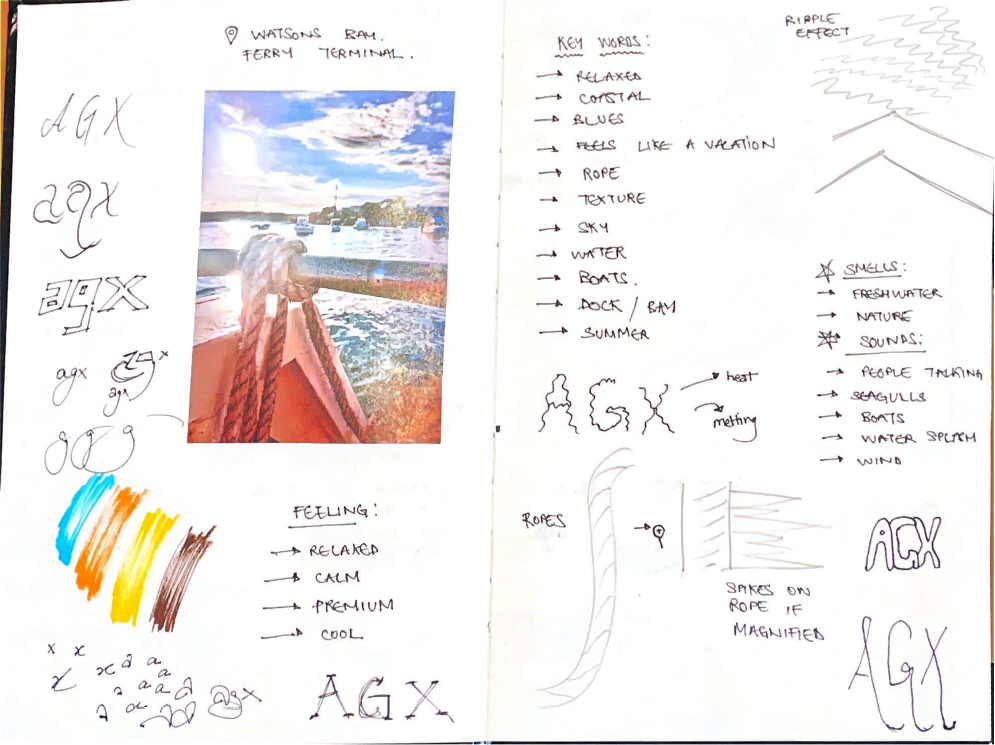 WATSONS BAY.
FERRY TERMINAL.
AGX
agx
agx
agx
agx
FEELING:
→ RELAXED
→ CALM
→ PREMIUM
→ COOL
x x
x x a a
a a a a
a a
agx
AGX
KEY WORDS:
→ RELAXED
→ COASTAL
→ BLUES
→ FEELS LIKE A VACATION
→ ROPE
→ TEXTURE
→ SKY
→ WATER
→ BOATS.
→ DOCK / BAY
→ SUMMER
AGX
→ heat
→ melting
ROPES
SPIKES ON
ROPE IF
MAGNIFIED
RIPPLE
EFFECT
SMELLS:
→ FRESHWATER
→ NATURE
SOUNDS:
→ PEOPLE TALKING
→ SEAGULLS
→ BOATS
→ WATER SPLASH
→ WIND
AGX
AGX